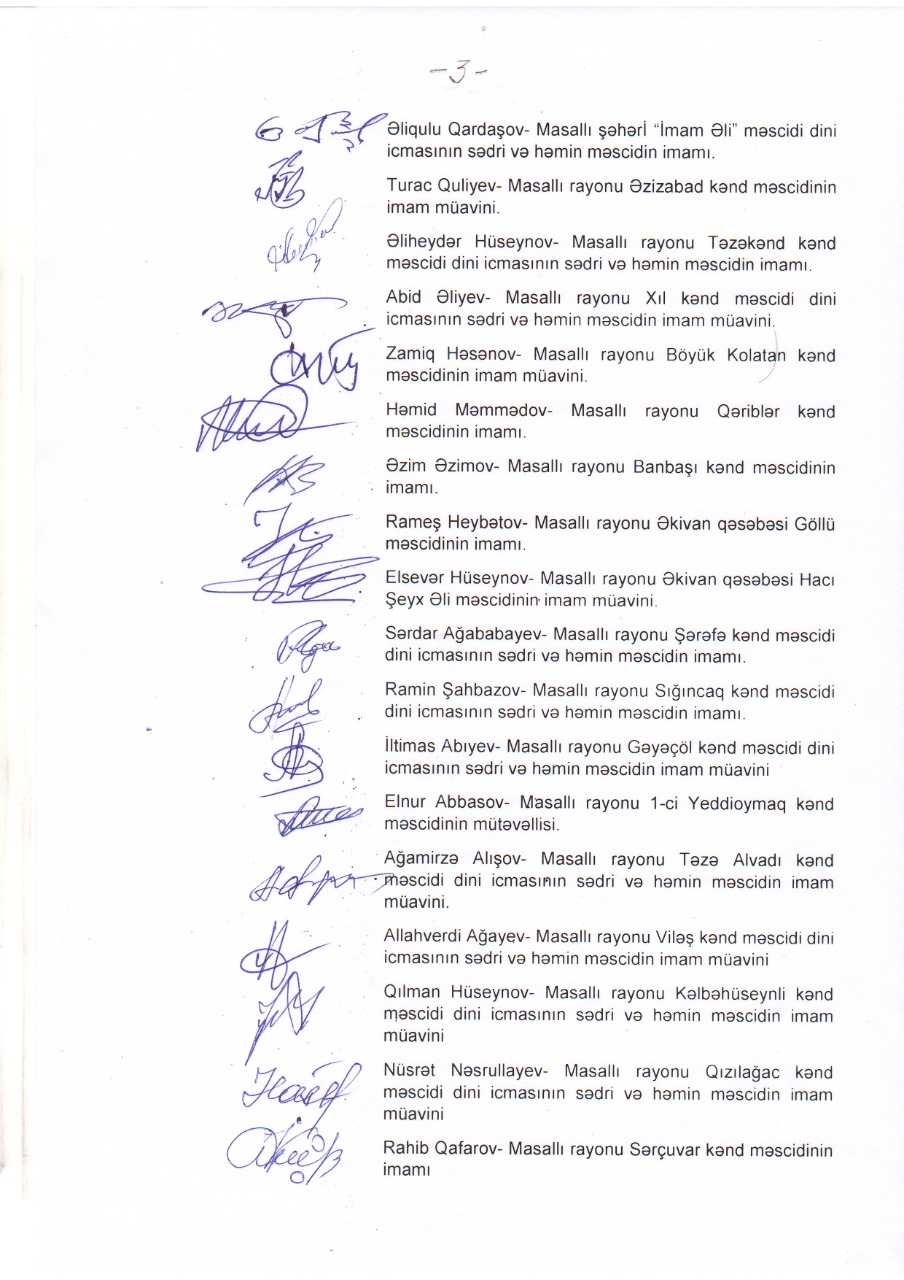 -3-
Əliqulu Qardaşov- Masallı şəhəri “İmam Əli” məscidi dini
icmasının sədri və həmin məscidin imamı.
Turac Quliyev- Masallı rayonu Əzizabad kənd məscidinin
imam müavini.
Əliheydər Hüseynov- Masallı rayonu Təzəkənd kənd
məscidi dini icmasının sədri və həmin məscidin imamı.
Abid Əliyev- Masallı rayonu Xıl kənd məscidi dini
icmasının sədri və həmin məscidin imam müavini.
Zamiq Həsənov- Masallı rayonu Böyük Kolatan kənd
məscidinin imam müavini.
Həmid Məmmədov- Masallı rayonu Qəriblər kənd
məscidinin imamı.
Əzim Əzimov- Masallı rayonu Banbaşı kənd məscidinin
imamı.
Rameş Heybətov- Masallı rayonu Əkivan qəsəbəsi Göllü
məscidinin imamı.
Elsevər Hüseynov- Masallı rayonu Əkivan qəsəbəsi Hacı
Şeyx Əli məscidinin imam müavini.
Sərdar Ağababayev- Masallı rayonu Şərəfə kənd məscidi
dini icmasının sədri və həmin məscidin imamı.
Ramin Şahbazov- Masallı rayonu Sığıncaq kənd məscidi
dini icmasının sədri və həmin məscidin imamı.
İltimas Abıyev- Masallı rayonu Gəyəçöl kənd məscidi dini
icmasının sədri və həmin məscidin imam müavini
Elnur Abbasov- Masallı rayonu 1-ci Yeddioymaq kənd
məscidinin mütəvəllisi.
Ağamirzə Alışov- Masallı rayonu Təzə Alvadı kənd
məscidi dini icmasının sədri və həmin məscidin imam
müavini.
Allahverdi Ağayev- Masallı rayonu Viləş kənd məscidi dini
icmasının sədri və həmin məscidin imam müavini
Qılman Hüseynov- Masallı rayonu Kəlbəhüseynli kənd
məscidi dini icmasının sədri və həmin məscidin imam
müavini
Nüsrət Nəsrullayev- Masallı rayonu Qızılağac kənd
məscidi dini icmasının sədri və həmin məscidin imam
müavini
Rahib Qafarov- Masallı rayonu Sərçuvar kənd məscidinin
imamı